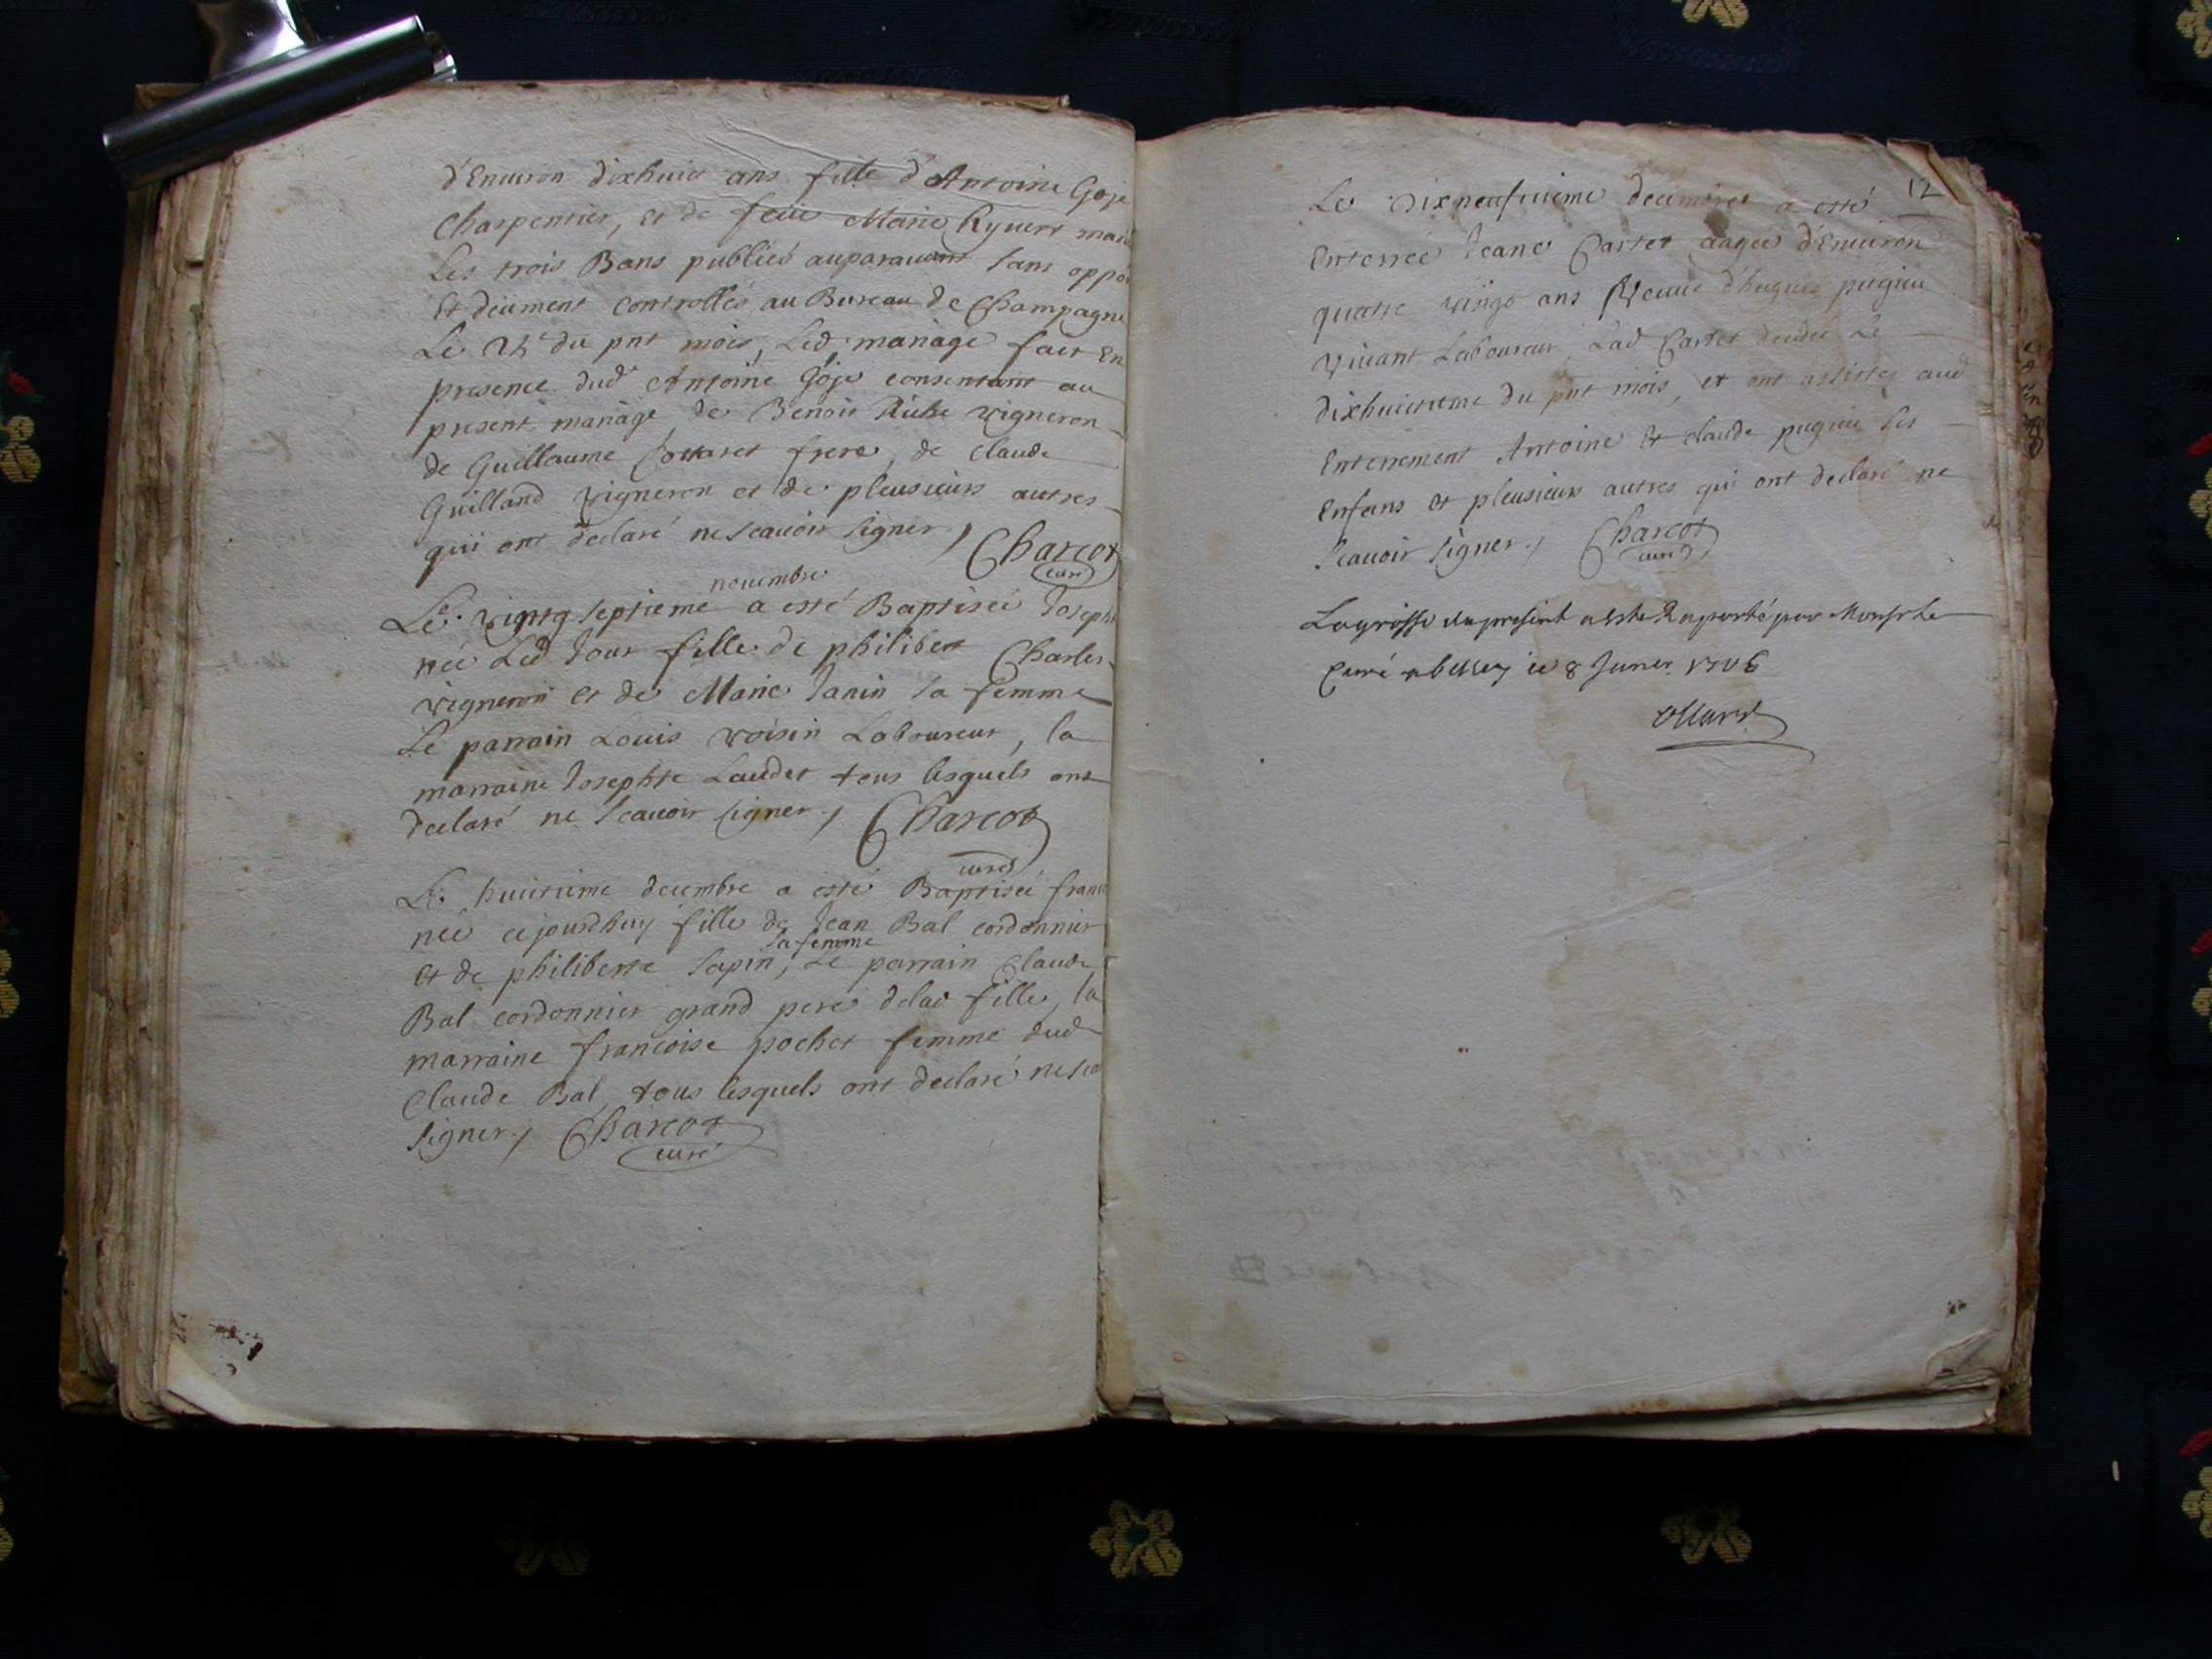 d'Enuiron dixhuict ans fille d'Antoine Goje
Charpentier, et de feüe Marie Ryuert
Les trois Bans publiés auparauant sans oppo
Et deüment controllés au Bureau de Champagne
Le du pnt mois, Led mariage fait En
presence dud Antoine Goje consentant au
present mariage, de Benoit vigneron
de Guillaume frere, de Claude
Guilland vigneron et de pleusieurs autres
qui ont declaré ne scauoir signer, Charcot
curé
novembre
Le vingt septieme a esté Baptiseé Joseph
neé Led Jour fille de philibert Charles
vigneron et de Marie Janin sa femme
Le parrain Louis voisin Laboureur, la
marraine Josephte Laudet tous lesquels ont
declaré ne scauoir signer, Charcot
curé
Le huictieme decembre a esté Baptiseé franc
neé cejourdhuy fille de Jean Bal cordonnier
sa femme
Et de philiberte Sapin, Le parrain Claude
Bal cordonnier grand pere delad fille, la
marraine francoise pochet femme dud
Claude Bal, tous lesquels ont declaré ne sca
signer, Charcot
curé
12
Le Dixneufuieme decembre a esté
Enterreé Jeane Cartet aageé d'Enuiron
quatre vingt ans Veuue d'hugues pugieu
viuant Laboureur, Lad Cartet decedeé Le
dixhuictieme du pnt mois, et ont assistez aud
Enterrement Antoine Et claude pugieu ses
Enfans et pleusieurs autres qui ont declaré ne
scauoir signer, Charcot
curé
Lagrosse du present a este Raporté par Monsr le
Curé a belley ce 8 Januer 1706